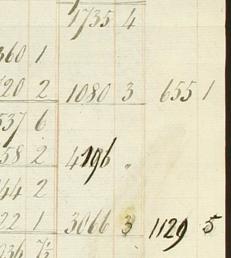 1735 4
360 1
720 2 1080 3 655 1
537 6
58 2 4196 "
44 2
22 1 3066 3 1129 5
036 7½